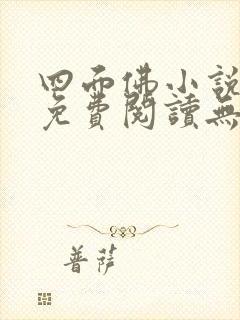 四面佛小說
免費閱讀無
菩薩